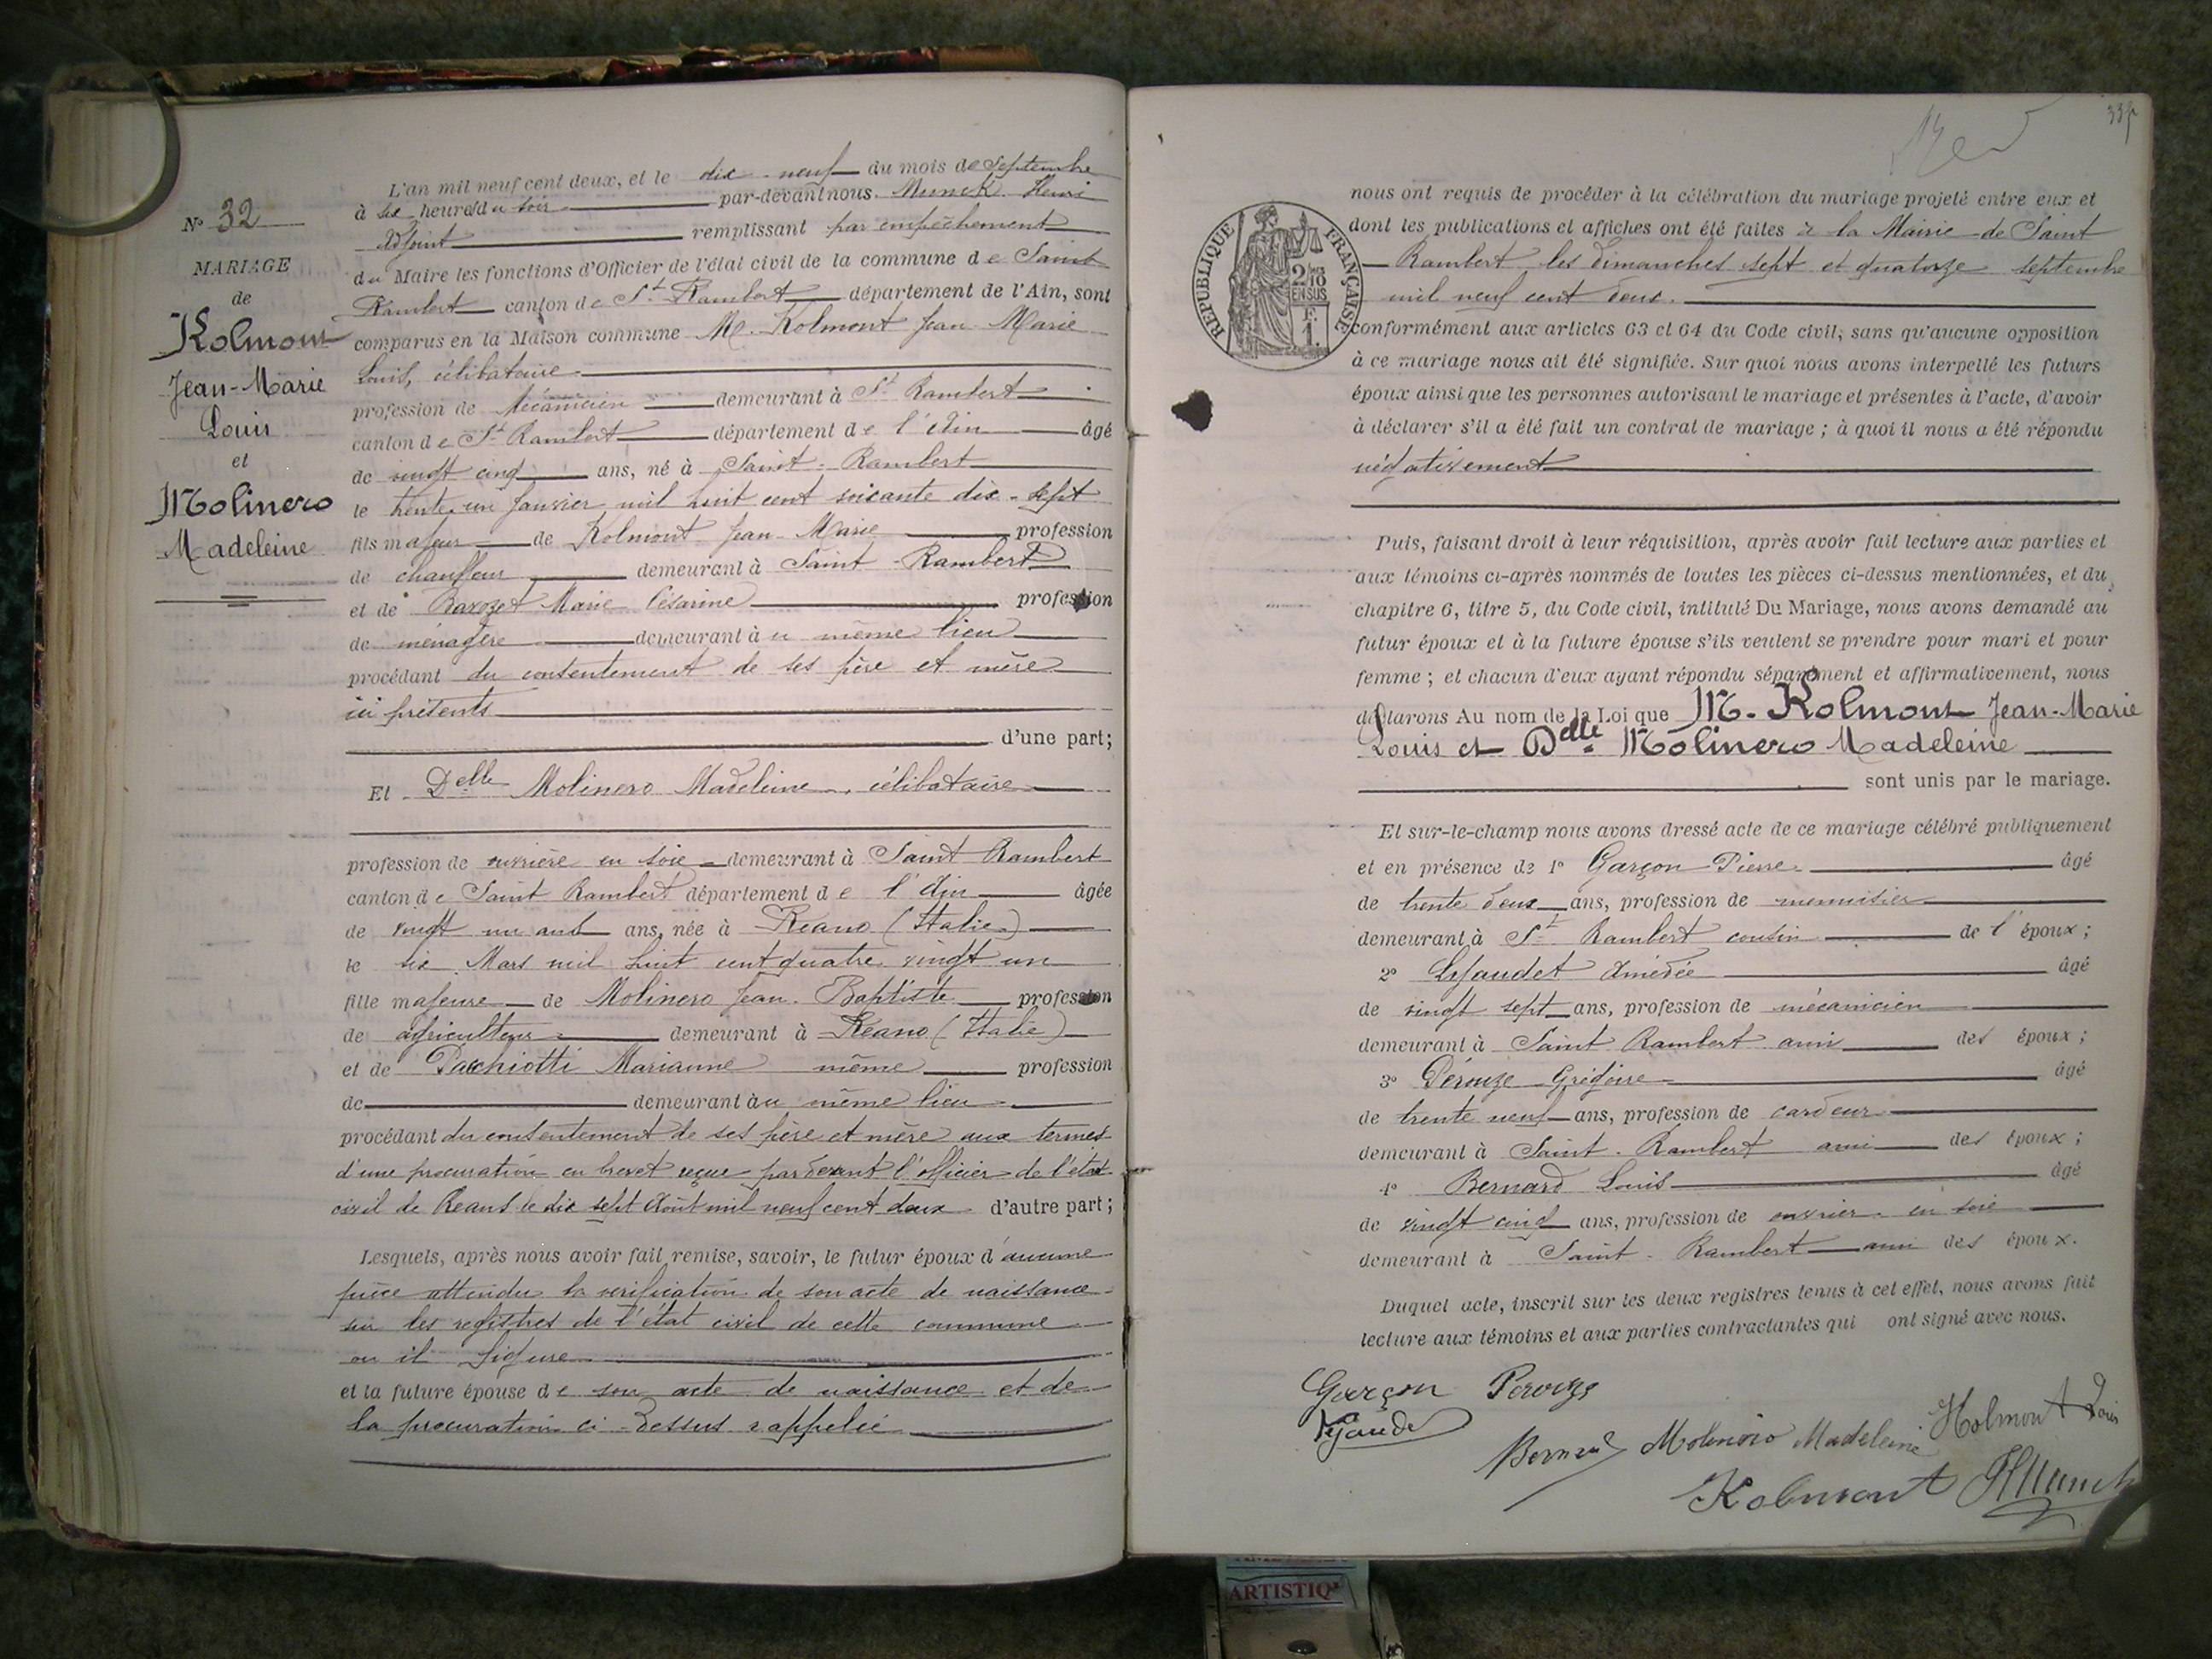 N° 32
MARIAGE
de
Kolmont
Jean-Marie
Louis
et
Molinero
Madeleine
L'an mil neuf cent deux, et le dix-neuf du mois de Septembre
à six heures du soir par-devant nous Munck Henri
Adjoint remplissant par empêchement
du Maire les fonctions d'Officier de l'état civil de la commune de Saint
Rambert canton de St Rambert département de l'Ain, sont
comparus en la Maison commune M. Kolmont Jean Marie
Louis, célibataire
profession de Mécanicien demeurant à St Rambert
canton de St Rambert département de l'Ain âgé
de vingt cinq ans, né à Saint-Rambert
le trente un Janvier mil huit cent soixante dix-sept
fils majeur de Kolmont Jean-Marie profession
de chauffeur demeurant à Saint-Rambert
et de Ravozet Marie Césarine profession
de ménagère demeurant au même lieu
procédant du consentement de ses père et mère
ici présents
d'une part;
Et Delle Molinero Madeleine, célibataire
profession de ouvrière en soie demeurant à Saint Rambert
canton de Saint Rambert département de l'Ain âgée
de vingt un ans ans, née à Reano (Italie)
le six Mars mil huit cent quatre vingt un
fille majeure de Molinero Jean-Baptiste profession
de agriculteur demeurant à Reano (Italie)
et de Pacchiotti Marianne même profession
de demeurant au même lieu
procédant du consentement de ses père et mère aux termes
d'une procuration en brevet reçue par devant l'officier de l'état
civil de Reano le dix sept Août mil neuf cent deux d'autre part;
Lesquels, après nous avoir fait remise, savoir, le futur époux d'aucune
pièce attendu la vérification de son acte de naissance
sur les registres de l'état civil de cette commune
ou il figure
et la future épouse de son acte de naissance et de
la procuration ci-dessus rappelée
RÉPUBLIQUE FRANÇAISE
2/10 EN SUS
F.
1
nous ont requis de procéder à la célébration du mariage projeté entre eux et
dont les publications et affiches ont été faites à la Mairie de Saint
Rambert les dimanches sept et quatorze septembre
mil neuf cent deux.
conformément aux articles 63 et 64 du Code civil, sans qu'aucune opposition
à ce mariage nous ait été signifiée. Sur quoi nous avons interpellé les futurs
époux ainsi que les personnes autorisant le mariage et présentes à l'acte, d'avoir
à déclarer s'il a été fait un contrat de mariage; à quoi il nous a été répondu
négativement
Puis, faisant droit à leur réquisition, après avoir fait lecture aux parties et
aux témoins ci-après nommés de toutes les pièces ci-dessus mentionnées, et du
chapitre 6, titre 5, du Code civil, intitulé Du Mariage, nous avons demandé au
futur époux et à la future épouse s'ils veulent se prendre pour mari et pour
femme; et chacun d'eux ayant répondu séparément et affirmativement, nous
déclarons Au nom de la Loi que M. Kolmont Jean-Marie
Louis et Delle Molinero Madeleine
sont unis par le mariage.
Et sur-le-champ nous avons dressé acte de ce mariage célébré publiquement
et en présence de 1° Garçon Pierre âgé
de trente deux ans, profession de menuisier
demeurant à St Rambert cousin de l'époux;
2° Lejaudet Amédée âgé
de vingt sept ans, profession de mécanicien
demeurant à Saint Rambert ami des époux;
3° Pérouze Grégoire âgé
de trente neuf ans, profession de cardeur
demeurant à Saint-Rambert ami des époux;
4° Bernard Louis âgé
de vingt cinq ans, profession de ouvrier en soie
demeurant à Saint-Rambert ami des époux.
Duquel acte, inscrit sur les deux registres tenus à cet effet, nous avons fait
lecture aux témoins et aux parties contractantes qui ont signé avec nous.
Garçon Perouze
Bernard Molinero Madeleine Kolmont Louis
Kolmont HMunck
ARTISTIQ